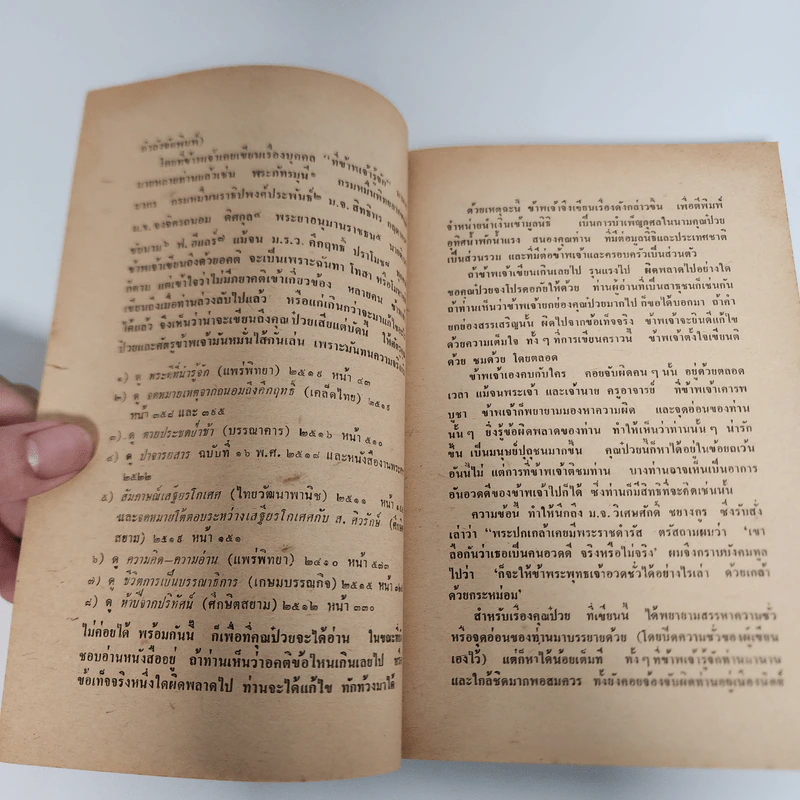 กำลังจัดพิมพ์)
โดยที่ข้าพเจ้าเคยเขียนเรื่องบุคคล "ที่ข้าพเจ้ารู้จัก"
มาหลายท่านแล้วเช่น พระภัทรมุนี๑
ยากร กรมหมื่นนราธิปพงศ์ประพันธ์๒ ม.จ. สิทธิพร
ม.จ. จงจิตรถนอม ดิศกุล๔ พระยาอนุมานราชธน๕
ชัยนาม๖ ฟ. ฮีแลร์๗ แม้จน ม.ร.ว. คึกฤทธิ์ ปราโมช๘
ข้าพเจ้าเขียนถึงด้วยอคติ จะเป็นเพราะฉันทา โทสา หรือ
ก็ตาม แต่เข้าใจว่าไม่มีภยาคติเข้าเกี่ยวข้อง หลายคน
เขียนถึงเมื่อท่านล่วงลับไปแล้ว หรือแก่เกินกว่าจะมาแก้ไข
ได้แล้ว จึงเห็นว่าน่าจะเขียนถึงคุณป๋วยเสียแต่บัดนี้
ป๋วยและศัตรูข้าพเจ้ามันหมั่นไส้กันเล่น เพราะมันทนความจริง
๑) ดู พระดีที่น่ารู้จัก (แพร่พิทยา) ๒๕๑๙ หน้า ๔๓
๒) ดู จดหมายเหตุจากถนอมถึงคึกฤทธิ์ (เคล็ดไทย) ๒๕๑๙
หน้า ๓๕๘ และ ๓๙๕
๓) ดู ตายประชดป่าช้า (บรรณาคาร) ๒๕๑๖ หน้า ๕๑๐
๔) ดู ปาจารยสาร ฉบับที่ ๑๖ พ.ศ. ๒๕๑๘ และหนังสืองานพระ
๒๕๒๒
๕) สัมภาษณ์เสฐียรโกเศศ (ไทยวัฒนาพานิช) ๒๕๑๑ หน้า
และจดหมายโต้ตอบระหว่างเสฐียรโกเศศกับ ส. ศิวรักษ์ (ศึกษิต
สยาม) ๒๕๑๙ หน้า ๑๕๑
๖) ดู ความคิด–ความอ่าน (แพร่พิทยา) ๒๔๑๐ หน้า ๕๘๓
๗) ดู ชีวิตการเป็นบรรณาธิการ (เกษมบรรณกิจ) ๒๕๑๕ หน้า
๘) ดู ห้าปีจากปริทัศน์ (ศึกษิตสยาม) ๒๕๑๒ หน้า ๓๓๐
ไม่ค่อยได้ พร้อมกันนี้ ก็เพื่อที่คุณป๋วยจะได้อ่าน ในขณะที่
ชอบอ่านหนังสืออยู่ ถ้าท่านเห็นว่าอคติข้อไหนเกินเลยไป
ข้อเท็จจริงหนึ่งใดผิดพลาดไป ท่านจะได้แก้ไข ทักท้วงมาได้
ด้วยเหตุฉะนี้ ข้าพเจ้าจึงเขียนเรื่องดังกล่าวขึ้น เพื่อตีพิมพ์
จำหน่ายนำเงินเข้ามูลนิธิ เป็นการบำเพ็ญกุศลในนามคุณป๋วย
อุทิศน้ำพักน้ำแรง สนองคุณท่าน ที่มีต่อมูลนิธิและประเทศชาติ
เป็นส่วนรวม และที่มีต่อข้าพเจ้าและครอบครัวเป็นส่วนตัว
ถ้าข้าพเจ้าเขียนเกินเลยไป รุนแรงไป ผิดพลาดไปอย่างใด
ขอคุณป๋วยจงโปรดอภัยให้ด้วย ท่านผู้อ่านที่เป็นสาธุชนก็เช่นกัน
ถ้าท่านเห็นว่าข้าพเจ้ายกย่องคุณป๋วยมากไป ก็ขอได้บอกมา ถ้าคำ
ยกย่องสรรเสริญนั้น ผิดไปจากข้อเท็จจริง ข้าพเจ้าจะยินดีแก้ไข
ด้วยความเต็มใจ ทั้ง ๆ ที่การเขียนคราวนี้ ข้าพเจ้าตั้งใจเขียนติ
ด้วย ชมด้วย โดยตลอด
ข้าพเจ้าเองคบกับใคร คอยจับผิดคน ๆ นั้น อยู่ด้วยตลอด
เวลา แม้จนพระเจ้า และเจ้านาย ครูอาจารย์ ที่ข้าพเจ้าเคารพ
บูชา ข้าพเจ้าก็พยายามมองหาความผิด และจุดอ่อนของท่าน
นั้น ๆ ยิ่งรู้ข้อผิดพลาดของท่าน ทำให้เห็นว่าท่านนั้น ๆ น่ารัก
ขึ้น เป็นมนุษย์ปุถุชนมากขึ้น คุณป๋วยนี้ก็หาได้อยู่ในข้อยกเว้น
อันนี้ไม่ แต่การที่ข้าพเจ้าติชมท่าน บางท่านอาจเห็นเป็นอาการ
อันอวดดีของข้าพเจ้าไปก็ได้ ซึ่งท่านก็มีสิทธิที่จะคิดเช่นนั้น
ความข้อนี้ ทำให้นึกถึง ม.จ. วิเศษศักดิ์ ชยางกูร ซึ่งรับสั่ง
เล่าว่า "พระปกเกล้าเคยมีพระราชดำรัส ตรัสถามผมว่า 'เขา
ลือกันว่าเธอเป็นคนอวดดี จริงหรือไม่จริง' ผมจึงกราบบังคมทูล
ไปว่า 'ก็จะให้ข้าพระพุทธเจ้าอวดชั่วได้อย่างไรเล่า ด้วยเกล้า
ด้วยกระหม่อม'
สำหรับเรื่องคุณป๋วย ที่เขียนนี้ ได้พยายามสรรหาความชั่ว
หรือจุดอ่อนของท่านมาบรรยายด้วย (โดยปิดความชั่วของผู้เขียน
เองไว้) แต่ก็หาได้น้อยเต็มที ทั้ง ๆ ที่ข้าพเจ้ารู้จักท่านมานาน
และใกล้ชิดมากพอสมควร ทั้งยังคอยจ้องจับผิดท่านอยู่เนืองนิตย์